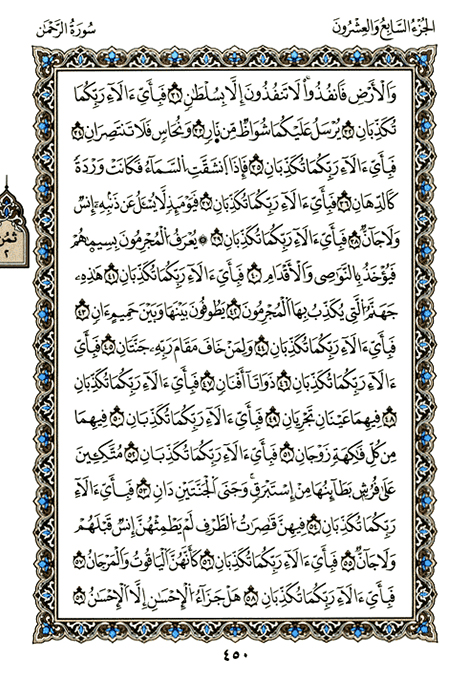 الجزء السابع والعشرون
سورة الرحمن
وَالْأَرْضِ فَانفُذُوا لَا تَنفُذُونَ إِلَّا بِسُلْطَٰنٍ ٣١ فَبِأَيِّ ءَالَآءِ رَبِّكُمَا
تُكَذِّبَانِ ٣٢ يُرْسَلُ عَلَيْكُمَا شُوَاظٌ مِّن نَّارٍ ٣٣ وَنُحَاسٌ فَلَا تَنتَصِرَانِ ٣٤
فَبِأَيِّ ءَالَآءِ رَبِّكُمَا تُكَذِّبَانِ ٣٥ فَإِذَا انشَقَّتِ السَّمَآءُ فَكَانَتْ وَرْدَةً
كَالدِّهَانِ ٣٦ فَبِأَيِّ ءَالَآءِ رَبِّكُمَا تُكَذِّبَانِ ٣٧ فَيَوْمَئِذٍ لَّا يُسْـَٔلُ عَن ذَنۢبِهِۦٓ إِنسٌ
وَلَا جَآنٌّ ٣٨ فَبِأَيِّ ءَالَآءِ رَبِّكُمَا تُكَذِّبَانِ ٣٩ ۞ يُعْرَفُ الْمُجْرِمُونَ بِسِيمَٰهُمْ
فَيُؤْخَذُ بِالنَّوَٰصِي وَالْأَقْدَامِ ٤٠ فَبِأَيِّ ءَالَآءِ رَبِّكُمَا تُكَذِّبَانِ ٤١ هَٰذِهِۦ
جَهَنَّمُ الَّتِي يُكَذِّبُ بِهَا الْمُجْرِمُونَ ٤٢ يَطُوفُونَ بَيْنَهَا وَبَيْنَ حَمِيمٍ ءَانٍ ٤٣
فَبِأَيِّ ءَالَآءِ رَبِّكُمَا تُكَذِّبَانِ ٤٤ وَلِمَنْ خَافَ مَقَامَ رَبِّهِۦ جَنَّتَانِ ٤٥ فَبِأَيِّ
ءَالَآءِ رَبِّكُمَا تُكَذِّبَانِ ٤٦ ذَوَاتَآ أَفْنَانٍ ٤٧ فَبِأَيِّ ءَالَآءِ رَبِّكُمَا تُكَذِّبَانِ
٤٨ فِيهِمَا عَيْنَانِ تَجْرِيَانِ ٤٩ فَبِأَيِّ ءَالَآءِ رَبِّكُمَا تُكَذِّبَانِ ٥٠ فِيهِمَا
مِن كُلِّ فَٰكِهَةٍ زَوْجَانِ ٥١ فَبِأَيِّ ءَالَآءِ رَبِّكُمَا تُكَذِّبَانِ ٥٢ مُتَّكِـِٔينَ
عَلَىٰ فُرُشٍ بَطَآئِنُهَا مِنْ إِسْتَبْرَقٍ وَجَنَى الْجَنَّتَيْنِ دَانٍ ٥٣ فَبِأَيِّ ءَالَآءِ
رَبِّكُمَا تُكَذِّبَانِ ٥٤ فِيهِنَّ قَٰصِرَٰتُ الطَّرْفِ لَمْ يَطْمِثْهُنَّ إِنسٌ قَبْلَهُمْ
وَلَا جَآنٌّ ٥٥ فَبِأَيِّ ءَالَآءِ رَبِّكُمَا تُكَذِّبَانِ ٥٦ كَأَنَّهُنَّ الْيَاقُوتُ وَالْمَرْجَانُ ٥٧
فَبِأَيِّ ءَالَآءِ رَبِّكُمَا تُكَذِّبَانِ ٥٨ هَلْ جَزَآءُ الْإِحْسَٰنِ إِلَّا الْإِحْسَٰنُ ٥٩
ثمن
٢
٤٥٠